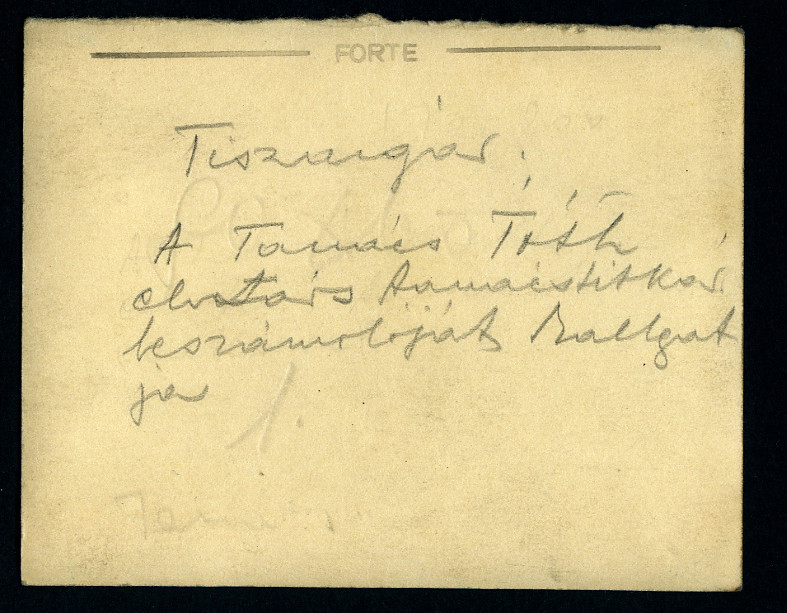 FORTE
Tiszaigar.
A Tanács Tóth
elvtárs tanácstitkár
beszámolóját hallgat
ja
1.